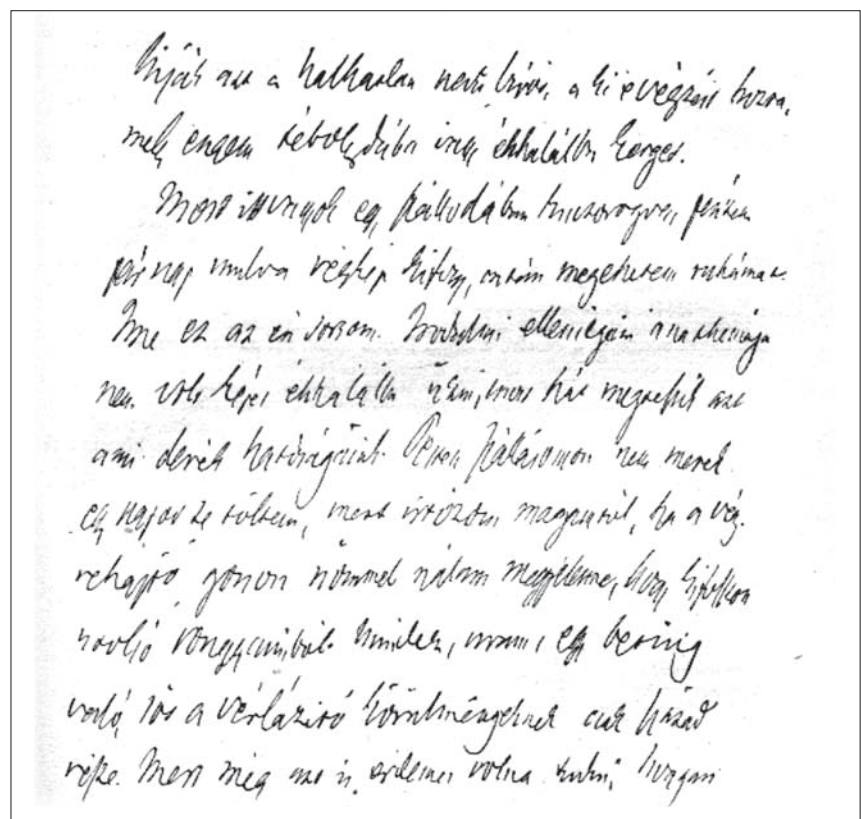 Hiják azt a halhatlan nevü bírót, a ki e végzést hozta,
mely engem tébolydába vagy éhhalálba kerget.
Most itt vagyok egy szállodában kuczorogva, pénzem
pár nap mulva végkép kifogy, aztán megehetem ruhámat.
Ime ez az én sorsom. Irodalmi ellenségeim
nem volt képes éhhalálba űzni, most hát megteszik azt
ami derék hatóságaink. Pesten szállásomon nem merek
egy napot se tölteni, mert irtózom magamtól, ha a vég-
rehajtó gonosz nőmmel nálam megjelenne, hogy kifosszon
rongyaimból. Mindez, uram, egy
való, sőt a vérlázitó körülményeknek csak század
része. Mert még azt is érdemes volna tudni, hogyan